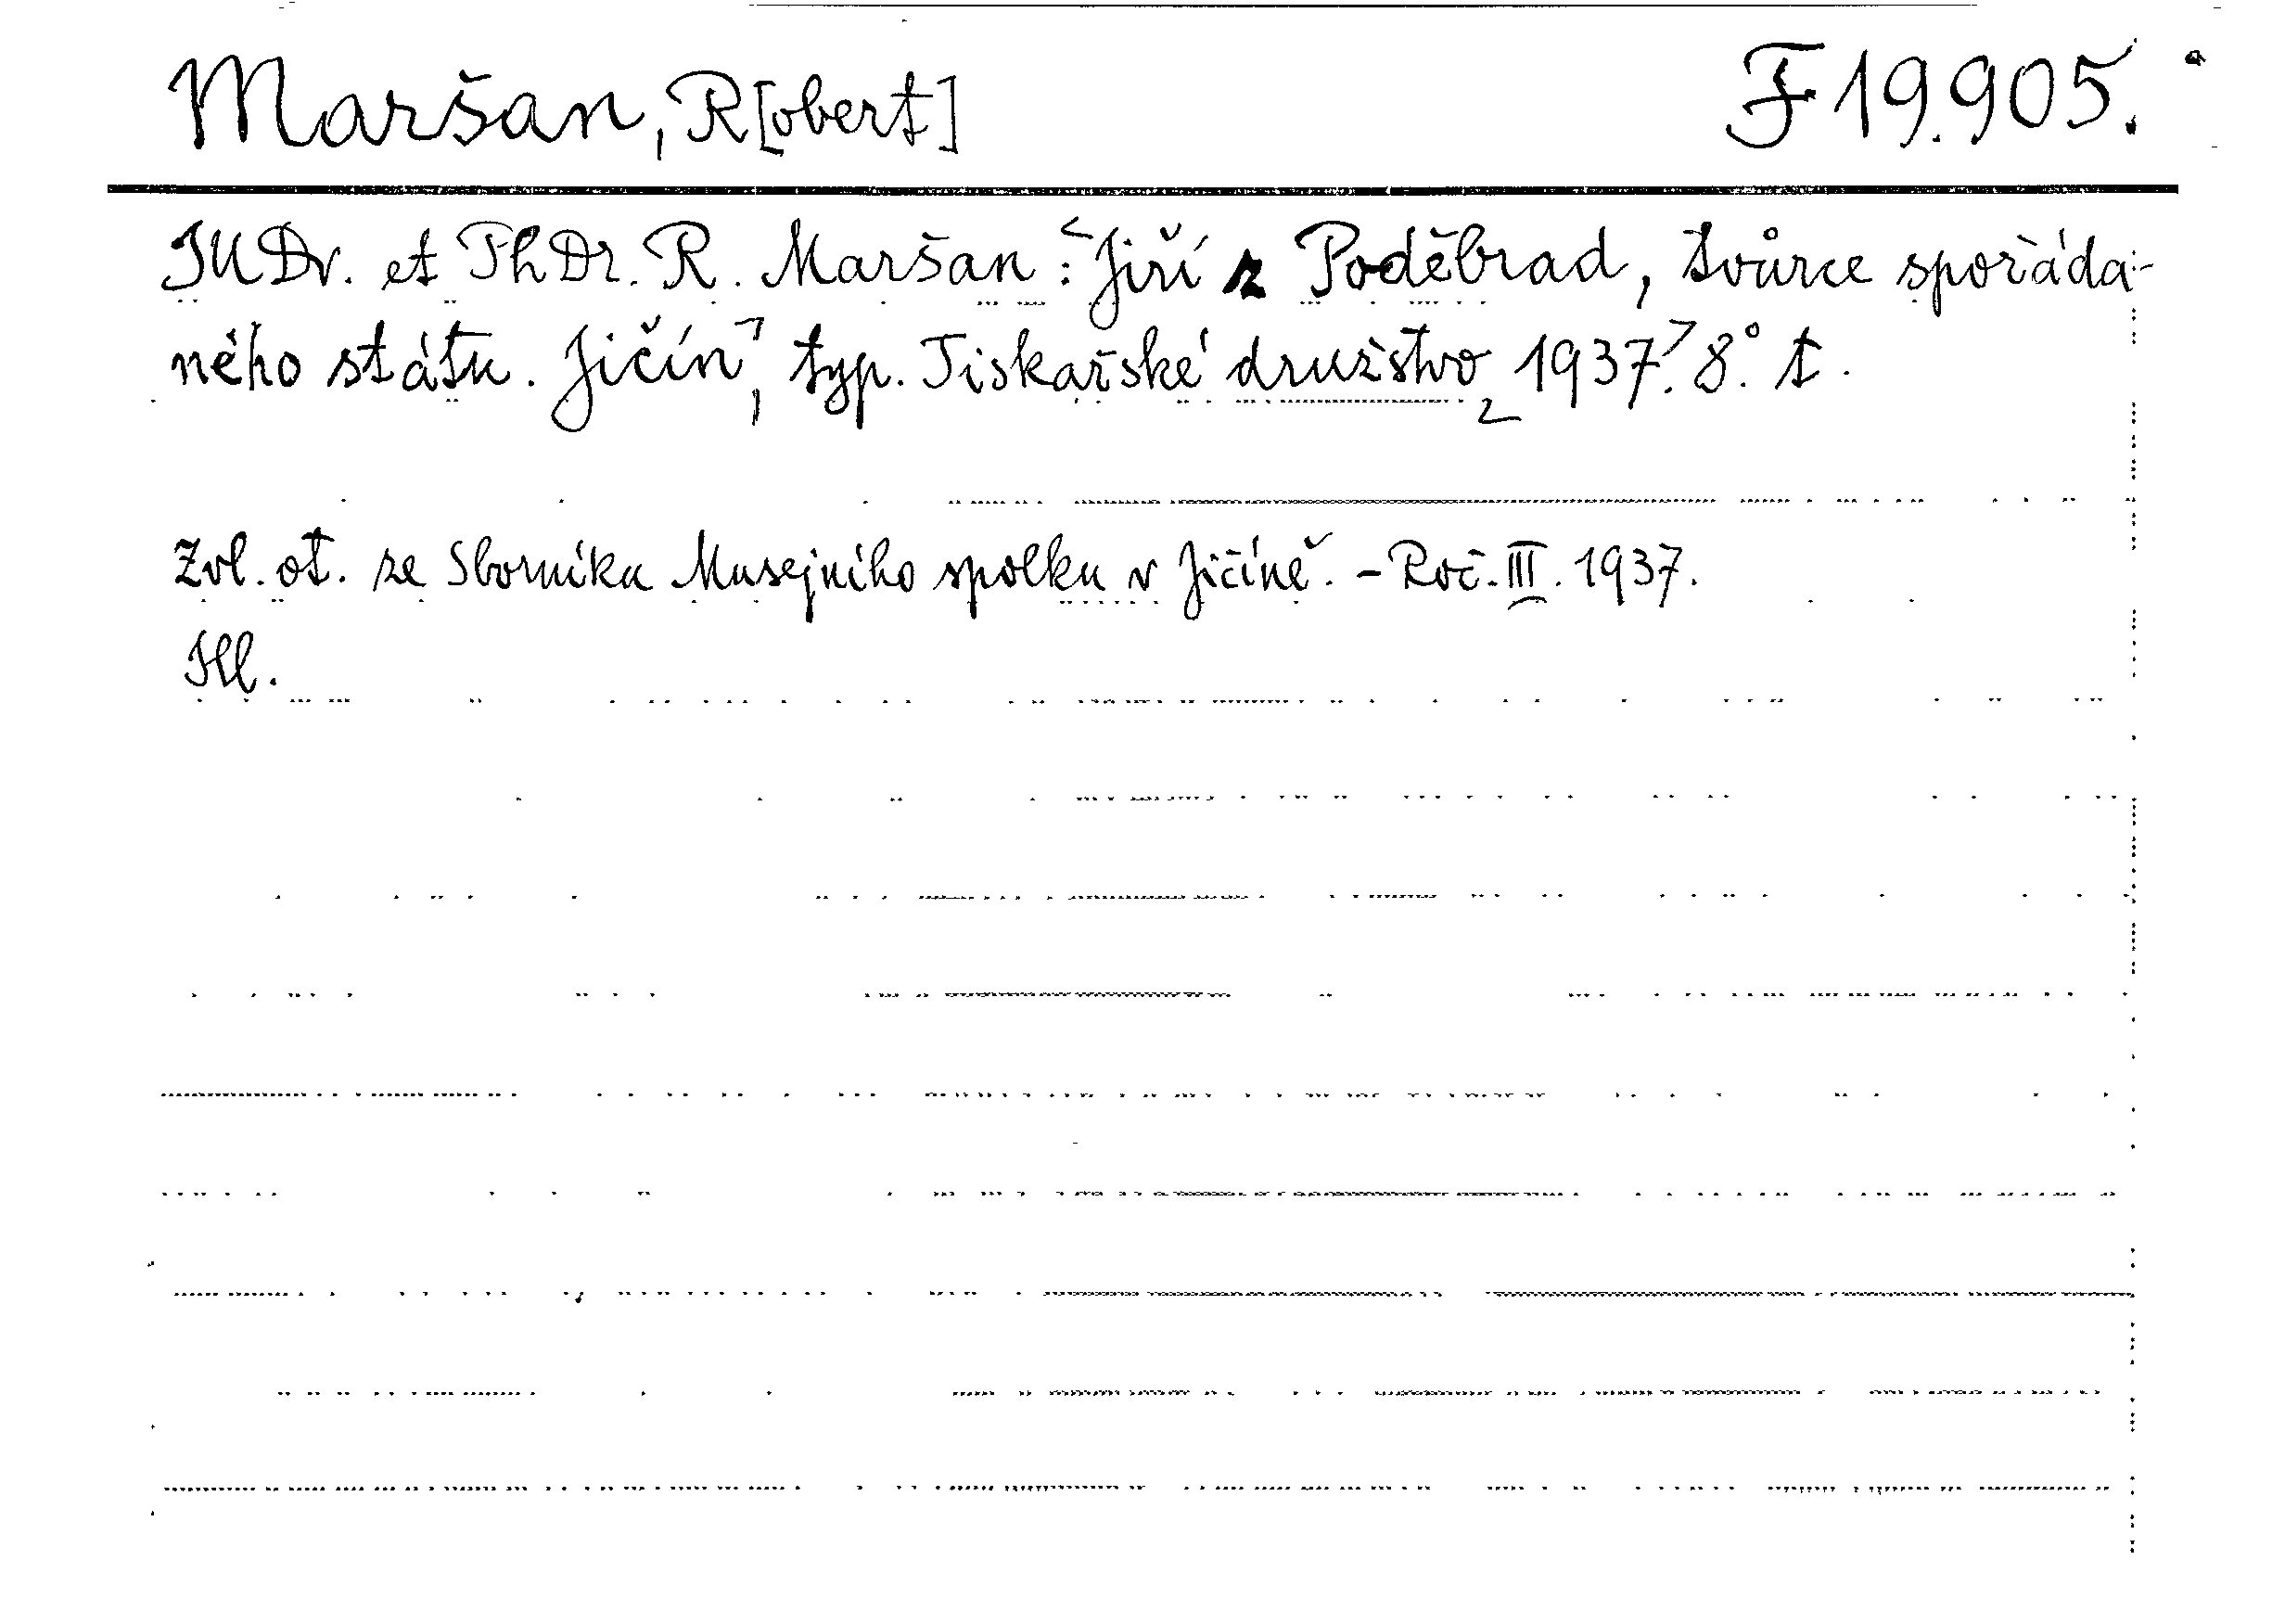 Maršan, R[obert] F 19.905.
JUDr. et PhDr. R. Maršan: Jiří z Poděbrad, tvůrce spořáda-
ného státu. Jičín, typ. Tiskařské družstvo 1937. 8° t.
Zvl. ot. ze Sborníku Musejního spolku v Jičíně. - Roč. III. 1937.
Hl.